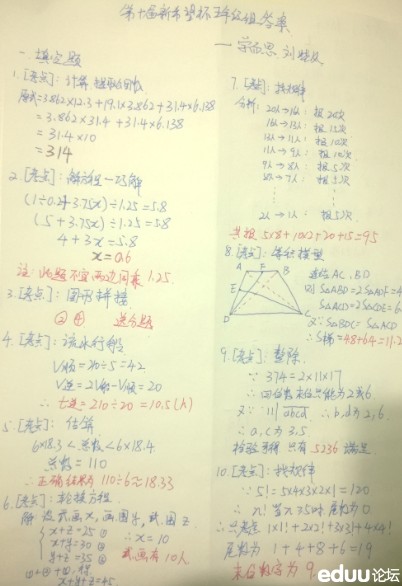 第十届新希望杯五年级组答案
一学而思 刘
一. 填空题
1. [考点]: 计算 提取公因数
原式=3.862×12.3+19.1×3.862+31.4×6.138
=3.862×31.4+31.4×6.138
=31.4×10
=314
2. [考点]: 解方程—巧解
(1÷0.2+3.75x)÷1.25=5.8
(5+3.75x)÷1.25=5.8
4+3x=5.8
x=0.6
注: 此题不宜两边同乘 1.25
3. [考点]: 图形拼接
② ④ 送分题
4. [考点]: 流水行船
V顺=210÷5=42
V逆=21÷V顺=20
∴ t逆=210÷20=10.5(h)
5. [考点]: 估算
6×18.3<总数<6×18.4
总数=110
∴正确结果为 110÷6≈18.33
6. [考点]: 轮换方程
解: 设武画x, 画围y, 武围z
x+z=25 ①
x+y=30 ②
y+z=35 ③
①+②+③, 得
x+y+z=45
∴x=10
武画有10人
7. [考点]: 找规律
分析: 20人→16人: 报20次
16人→13人: 报15次
13人→11人: 报10次
11人→9人: 报10次
9人→8人: 报5次
8人→7人: 报5次
⋮
2人→1人: 报5次
共报 5×8+10×2+20+15=95
8. [考点]: 等积模型
A E B
D C
连结AC, BD
则 S△ABD=2S△AED=4
S△ACD=2S△CDE=6
又∵ S△BDC=S△ACD
∴S梯=4.8+6.4=11.2
9. [考点]: 整除
∵ 374=2×11×17
∴ 四位数末位只能为2或6
又∵ 11|abcd ∴b,d为2,6
∴ a,c为3,5
检验算得 只有5236 满足
10. [考点]: 找规律
∵ 5!=5×4×3×2×1=120
∴ n! 当n≥5时 尾数为0
∴只考虑 1×1!+2×2!+3×3!+4×4!
尾数为 1+4+8+6=19
末位数字为 9
eduu论坛